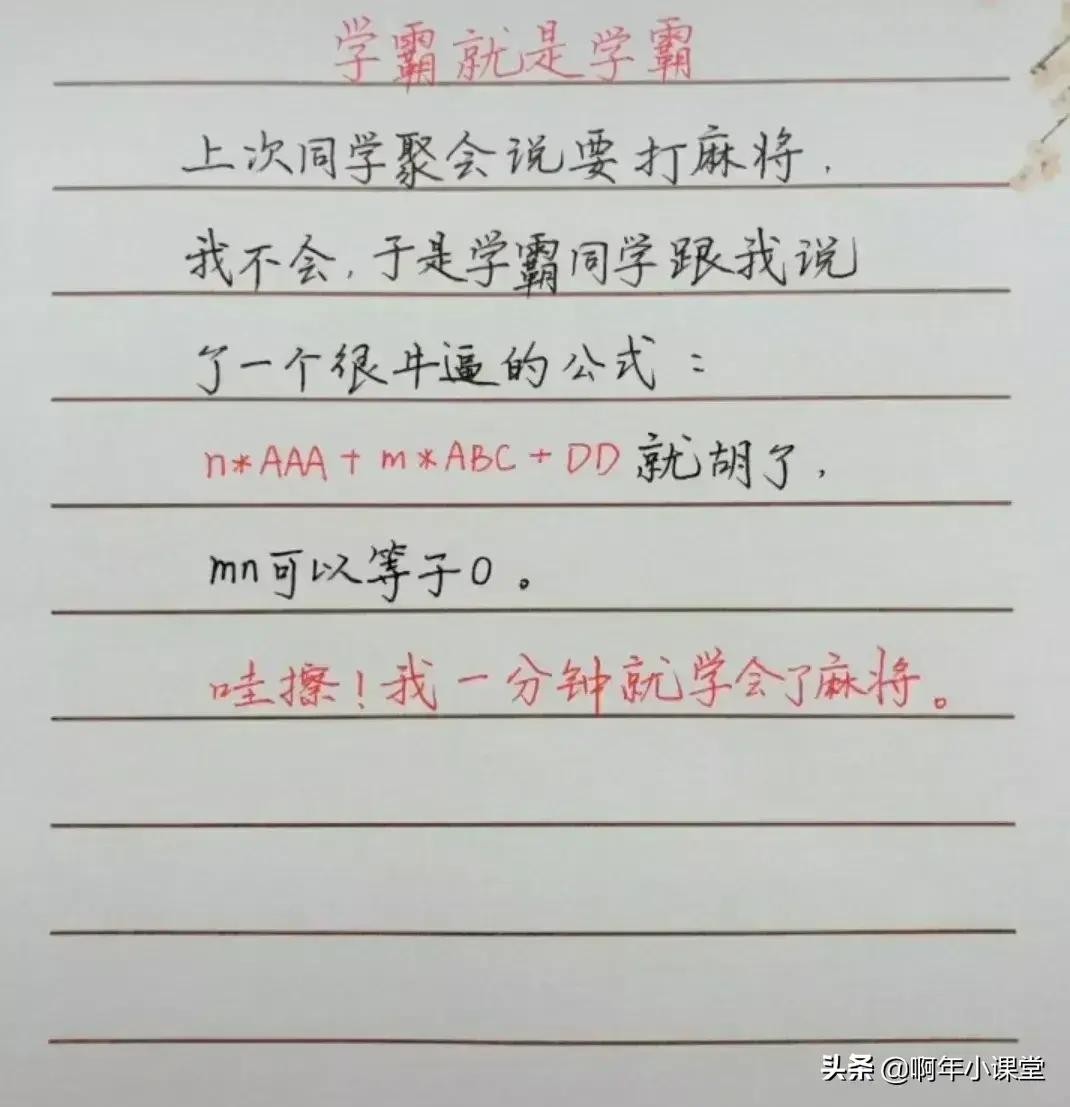 学霸就是学霸
上次同学聚会说要打麻将，
我不会，于是学霸同学跟我说
了一个很牛逼的公式：
n*AAA+m*ABC+DD就胡了，
mn可以等于0。
哇擦！我一分钟就学会了麻将。
头条 @啊年小课堂